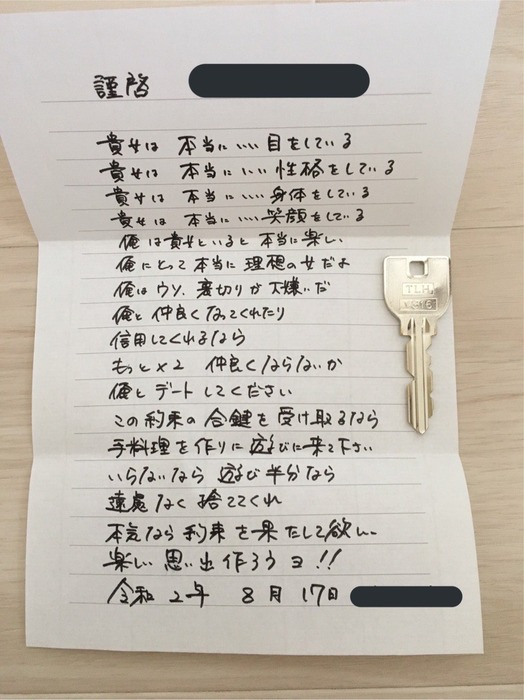 謹啓
貴女は 本当にいい目をしている
貴女は 本当にいい性格をしている
貴女は 本当にいい身体をしている
貴女は 本当にいい笑顔をしている
俺は貴女といると本当に楽しい
俺にとって本当に理想の女だよ
俺はウソ、裏切りが大嫌いだ
俺と仲良くなってくれたり
信用してくれるなら
もっと×2 仲良くならないか
俺とデートしてください
この約束の合鍵を受け取るなら
手料理を作りに遊びに来て下さい
いらないなら遊び半分なら
遠慮なく捨ててくれ
本気なら約束を果たして欲しい
楽しい思い出作ろうヨ!!
令和2年 8月17日
TLH